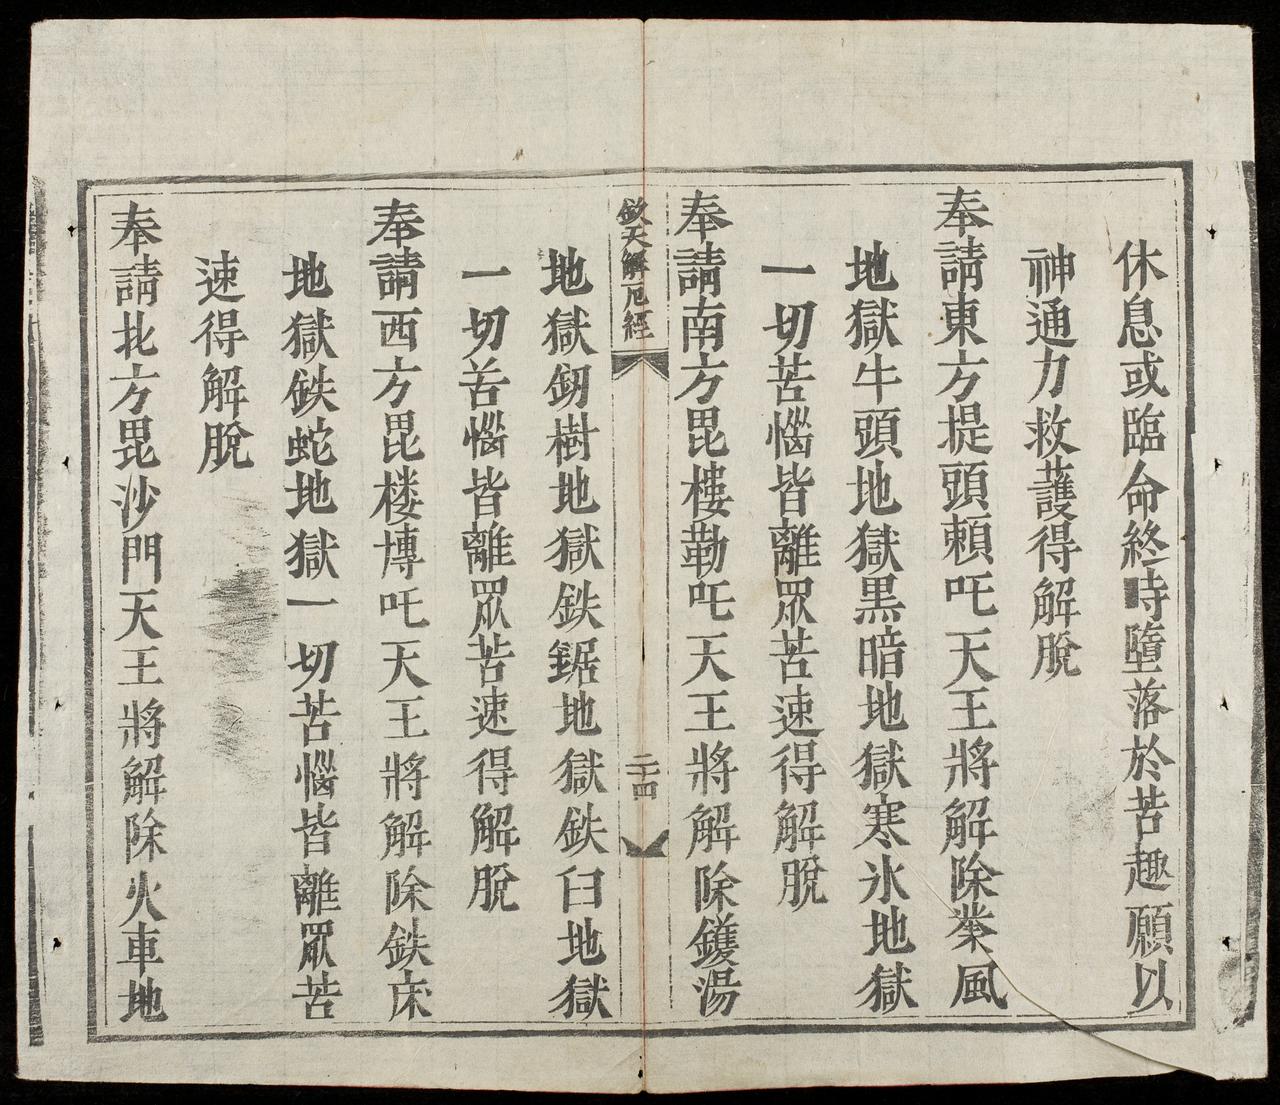 休息或臨命終時墮落於苦趣願以
神通力救護得解脫
奉請東方提頭賴吒天王將解除業風
地獄牛頭地獄黑暗地獄寒氷地獄
一切苦惱皆離眾苦速得解脫
奉請南方毘樓勒吒天王將解除鑊湯
欽天解厄經
二十四
地獄釼樹地獄鉄鋸地獄鉄臼地獄
一切苦惱皆離眾苦速得解脫
奉請西方毘楼博吒天王將解除鉄床
地獄鉄蛇地獄一切苦惱皆離眾苦
速得解脫
奉請北方毘沙門天王將解除火車地